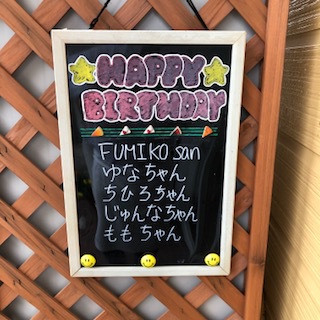 HAPPY
BIRTHDAY
FUMIKO san
ゆなちゃん
ちひろちゃん
じゅんなちゃん
ももちゃん